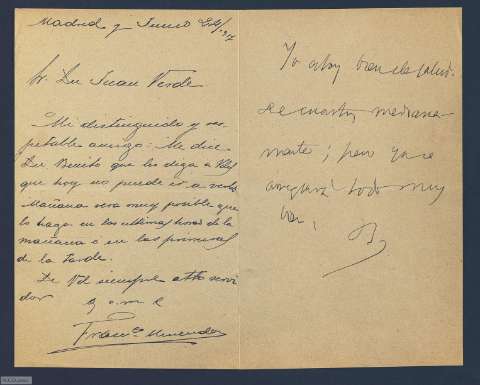 Madrid y Junio 24/914
Sr. Dn Juan Verde
Mi distinguido y res
petable amigo: Me dice
Dn Benito que les diga a Vdes
que hoy no puede ir a verle
Mañana sera muy posible que
lo haga en las ultimas horas de la
mañana o en las primeras
de la tarde.
De Vd siempre atto servi
dor
q. s. m. b
Franco Menendez
Yo estoy bien de salud.
De cuartos, mediana-
mente; pero ya se
arreglará todo muy
bien,
B.